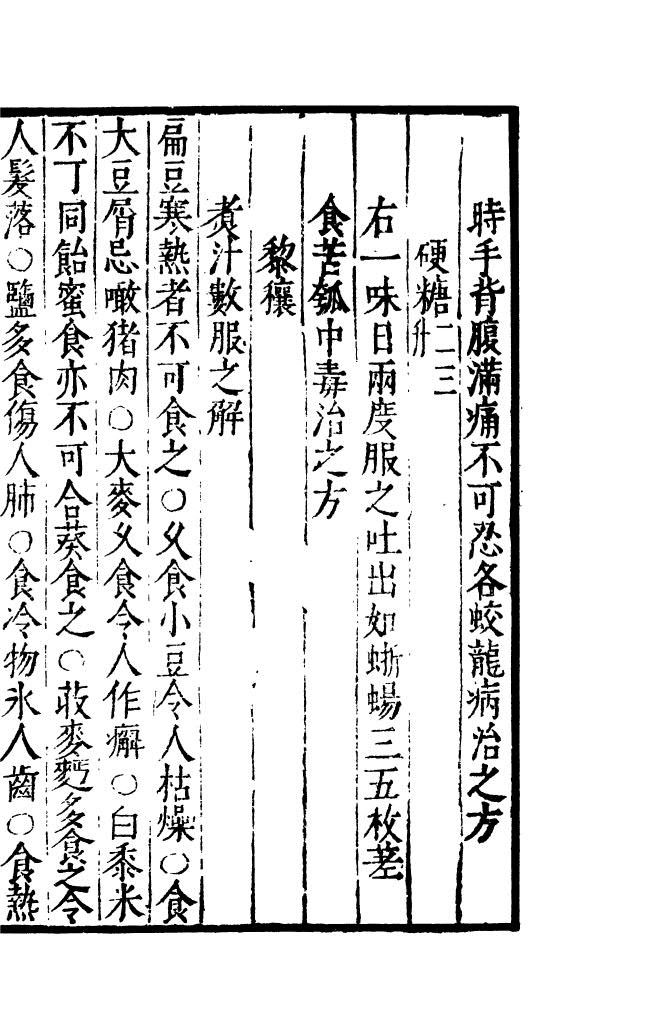 時手背腹滿痛不可忍各蛟龍病治之方
硬糖二三升
右一味日兩度服之吐出如蜥蜴三五枚差
食苦瓠中毒治之方
黎穰
煑汁數服之解
扁豆寒熱者不可食之○乆食小豆令人枯燥○食
大豆屑忌噉猪肉○大麥乆食令人作癬○白黍米
不丁同飴蜜食亦不可合葵食之○荍麥麪多食之令
人髮落○鹽多食傷人肺○食冷物氷人齒○食熱